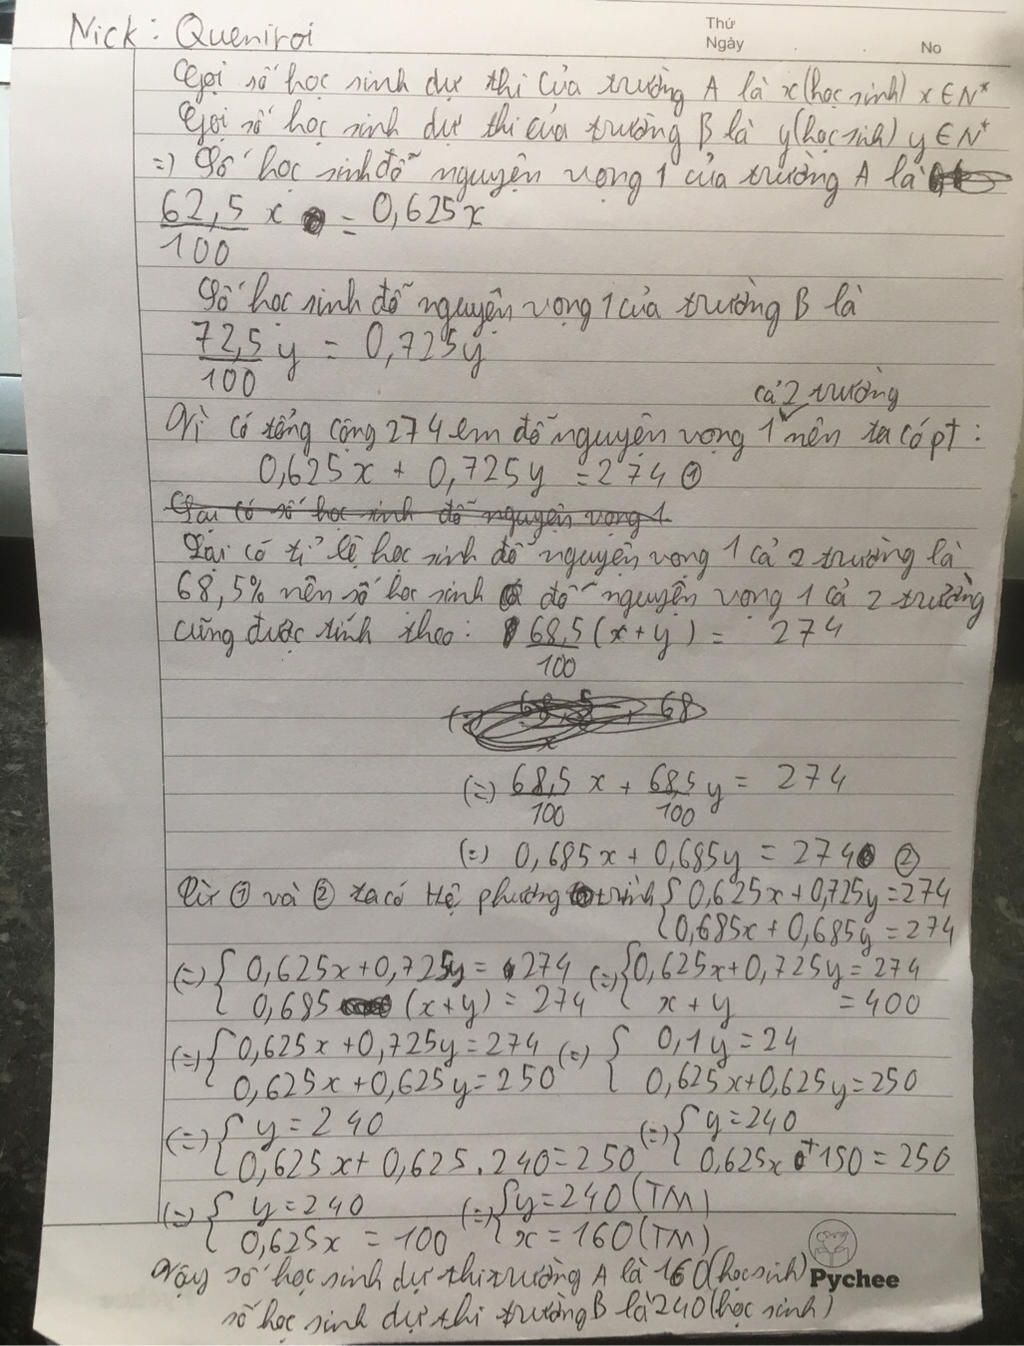 Nick: Queniroi
Thứ
Ngày
No
Gọi số học sinh dự thi của trường A là x(học sinh) x∈N*
Gọi số học sinh dự thi của trường B là y(học sinh) y∈N*
=) Số học sinh đỗ nguyện vọng 1 của trường A là
62,5/100 x = 0,625x
Số học sinh đỗ nguyện vọng 1 của trường B là
72,5/100 y = 0,725y
cả 2 trường
Vì có tổng cộng 274 em đỗ nguyện vọng 1 nên ta có pt:
0,625x + 0,725y = 274 ①
Lại có số học sinh đỗ nguyện vọng 1
Lại có tỉ lệ học sinh đỗ nguyện vọng 1 cả 2 trường là
68,5% nên số học sinh đỗ nguyện vọng 1 cả 2 trường
cũng được tính theo: 68,5/100 (x+y) = 274
(=) 68
(=) 68,5/100 x + 68,5/100 y = 274
(=) 0,685x + 0,685y = 274 ②
Từ ① và ② ta có Hệ phương trình { 0,625x+0,725y=274
0,685x + 0,685y = 274
(=) { 0,625x+0,725y = 274 (=) { 0,625x+0,725y = 274
0,685 (x+y) = 274 x + y = 400
(=) { 0,625x+0,725y=274 (=) { 0,1y = 24
0,625x+0,625y=250 0,625x+0,625y=250
(=) { y = 240 (=) { y=240
0,625x+ 0,625.240=250 0,625x + 150 = 250
(=) { y=240 (=) { y=240 (TM)
0,625x = 100 x = 160(TM)
Vậy số học sinh dự thi trường A là 160(học sinh)
Pychee
số học sinh dự thi trường B là 240(học sinh)